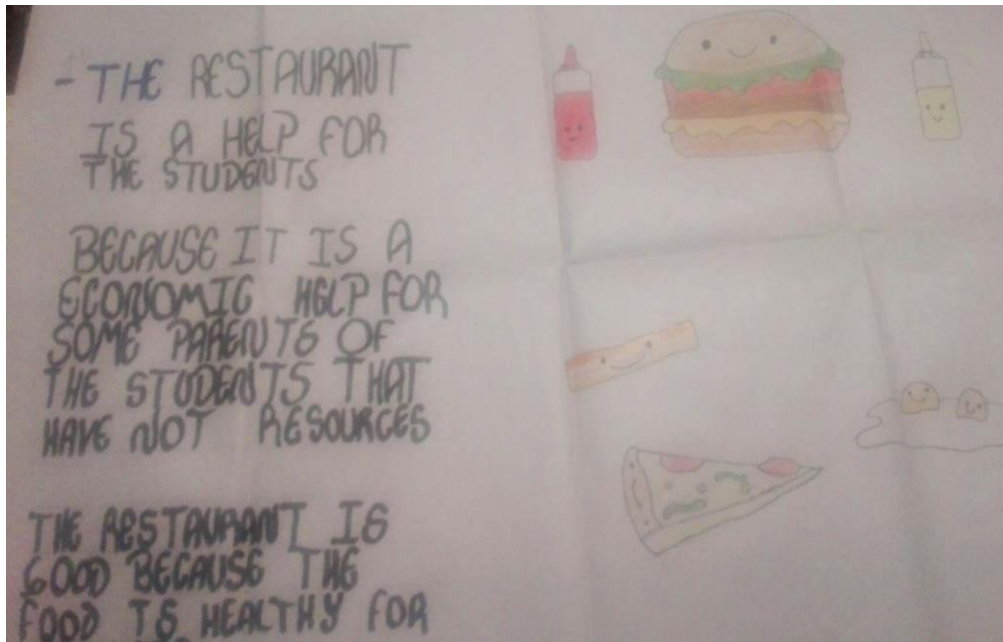 - THE RESTAURANT
IS A HELP FOR
THE STUDENTS
BECAUSE IT IS A
ECONOMIC HELP FOR
SOME PARENTS OF
THE STUDENTS THAT
HAVE NOT RESOURCES
THE RESTAURANT IS
GOOD BECAUSE THE
FOOD IS HEALTHY FOR